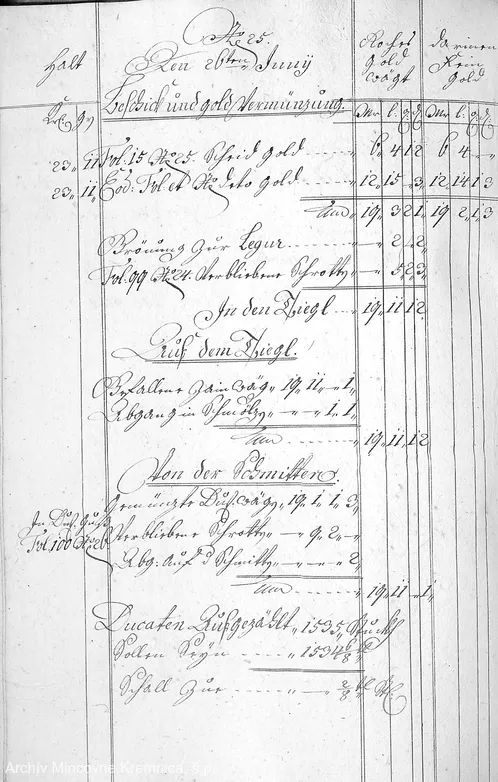 No 25.
Halt
Den 26ten Junij
Roches Gold wägt
darinen Fein Gold
Beschick und Gold Vermünzung.
Mr. l: q. d. Mr. l: q. d.
23 11 Fol. 15 No 25. Scheid Gold 6 4 1 2 6 4 - -
23 11 Eod: Fol et No deto Gold 12 15 - 3 12 14 1 3
Sum 19 3 2 1 19 2 1 3
Grönung zur Legur - 2 - 2
Fol. 99 No 24. Verbliebene Schrotty - 5 2 3
In den Tiegl 19 11 1 2
Auß dem Tiegl.
Gefallene Zain wäg 19 11 - 1
Abgang in Schmölzn - - 1 1
Sum 19 11 1 2
Von der Schmitten.
Gemüngte Duc. wäg 19 1 1 3
Fol. 100 No 26
Verbliebene Schrotty - 9 2 -
Abg: auf d Schmitty - - - 2
Sum 19 11 - 1
Ducaten Aufgezählt 1535 Stuckh
Sollen Seyn 1534 6/8 tl
Schall Zue - 2/8 tl
Archiv Mincovne Kremnica, š.p.